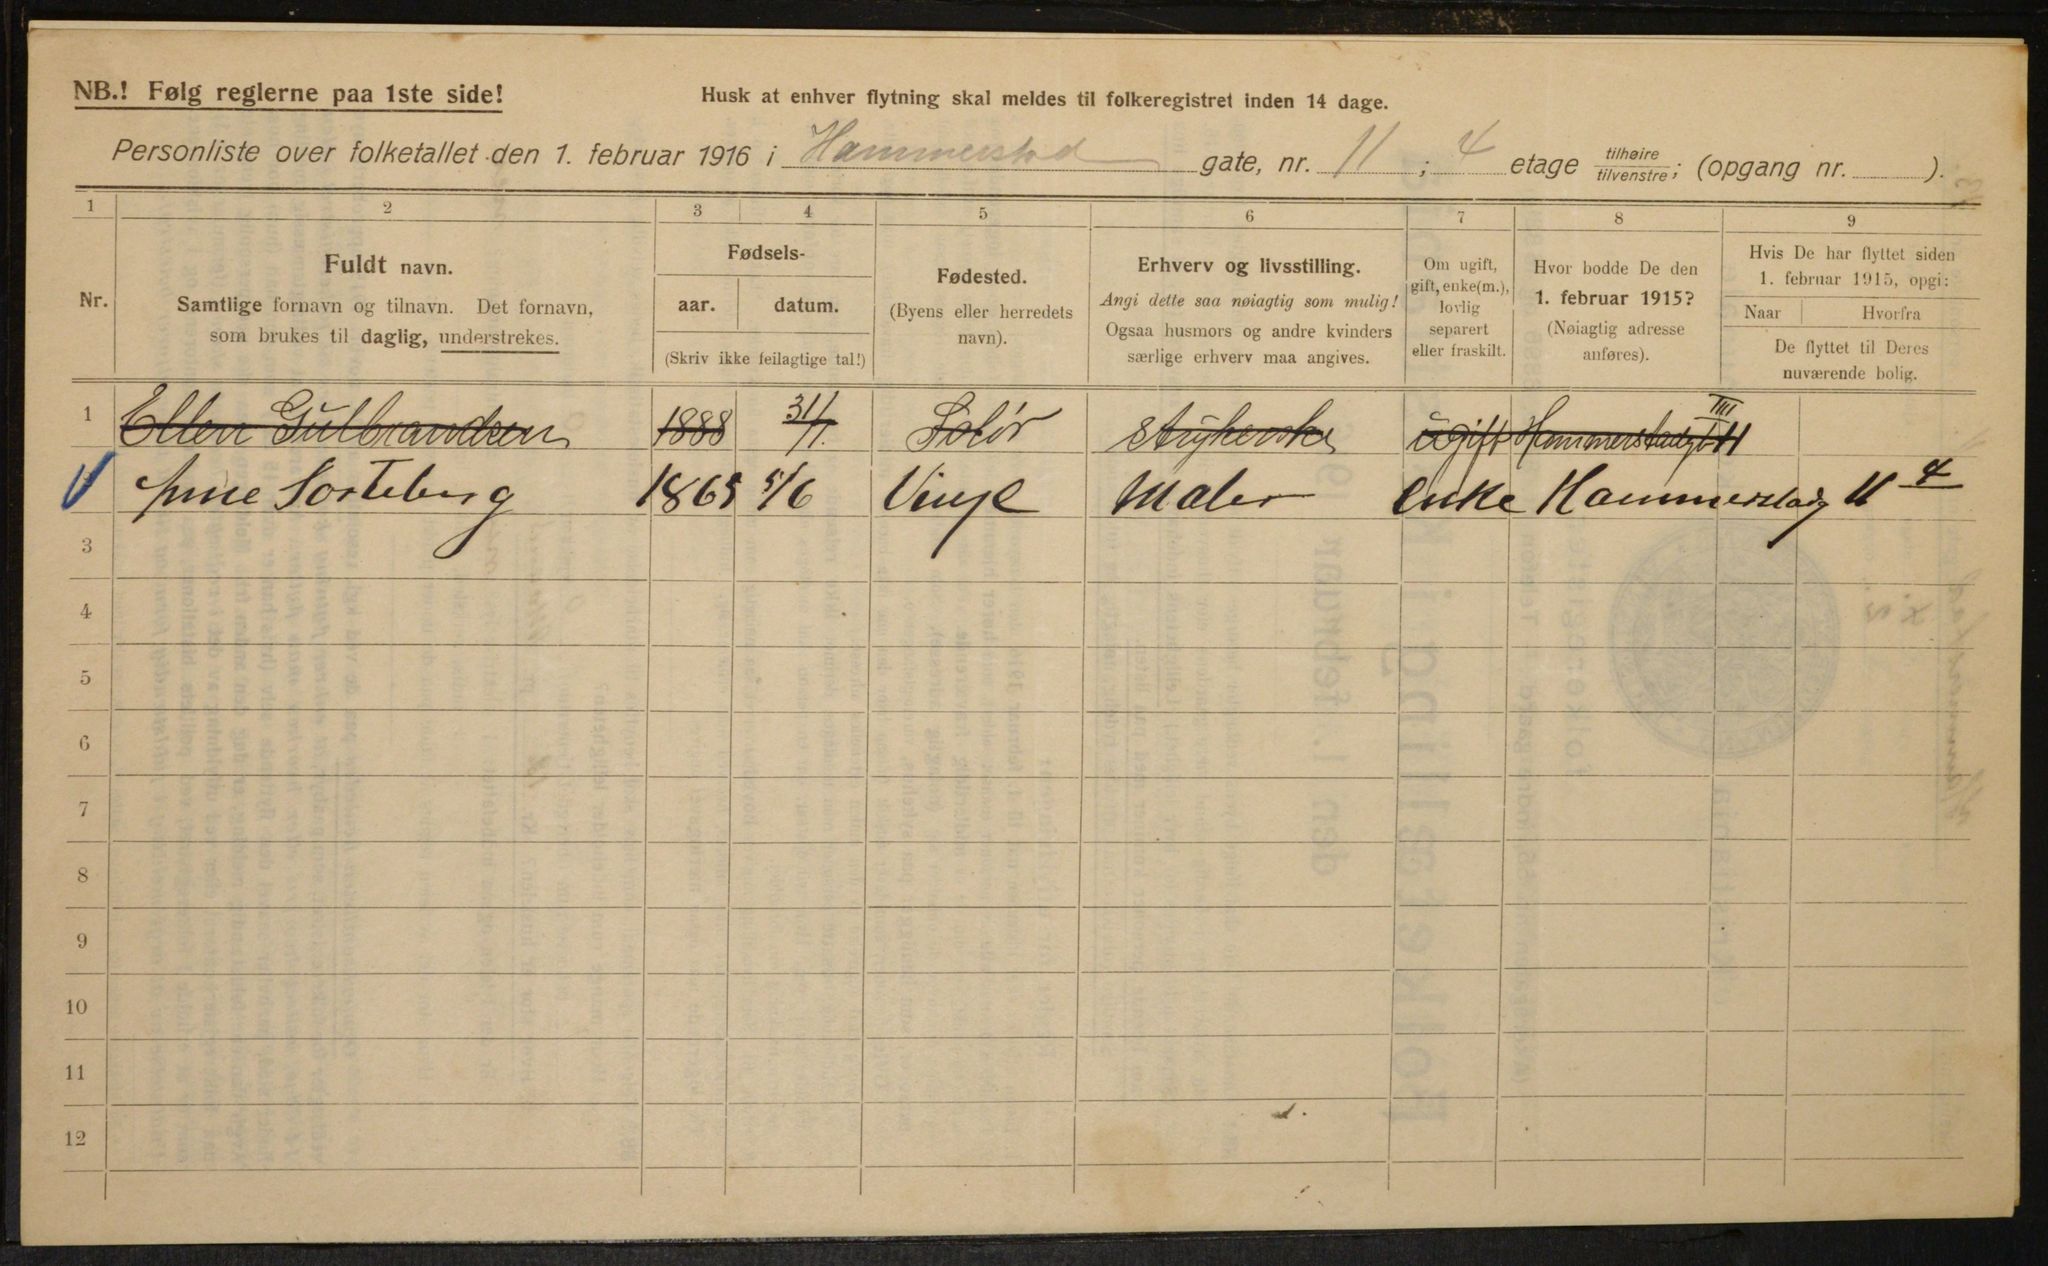 NB.! Følg reglerne paa 1ste side!
Husk at enhver flytning skal meldes til folkeregistret inden 14 dage.
Personliste over folketallet den 1. februar 1916 i Hammerstad gate, nr. 11 ; 4 etage tilhøire/tilvenstre; (opgang nr. ).
1 2 3 4 5 6 7 8 9
Nr.
Fuldt navn.
Samtlige fornavn og tilnavn. Det fornavn,
som brukes til daglig, understrekes.
Fødsels-
aar. datum.
(Skriv ikke feilagtige tal!)
Fødested.
(Byens eller herredets
navn).
Erhverv og livsstilling.
Angi dette saa nøiagtig som mulig!
Ogsaa husmors og andre kvinders
særlige erhverv maa angives.
Om ugift,
gift, enke(m.),
lovlig
separert
eller fraskilt.
Hvor bodde De den
1. februar 1915?
(Nøiagtig adresse
anføres).
Hvis De har flyttet siden
1. februar 1915, opgi:
Naar Hvorfra
De flyttet til Deres
nuværende bolig.
1 Ellen Gulbrandsen 1888 31/1 Solør Strykerske ugift Hammerstadgt 11 III
Anne Sorteberg 1865 5/6 Maler Enke Hammerstadg 11 4
3
4
5
6
7
8
9
10
11
12